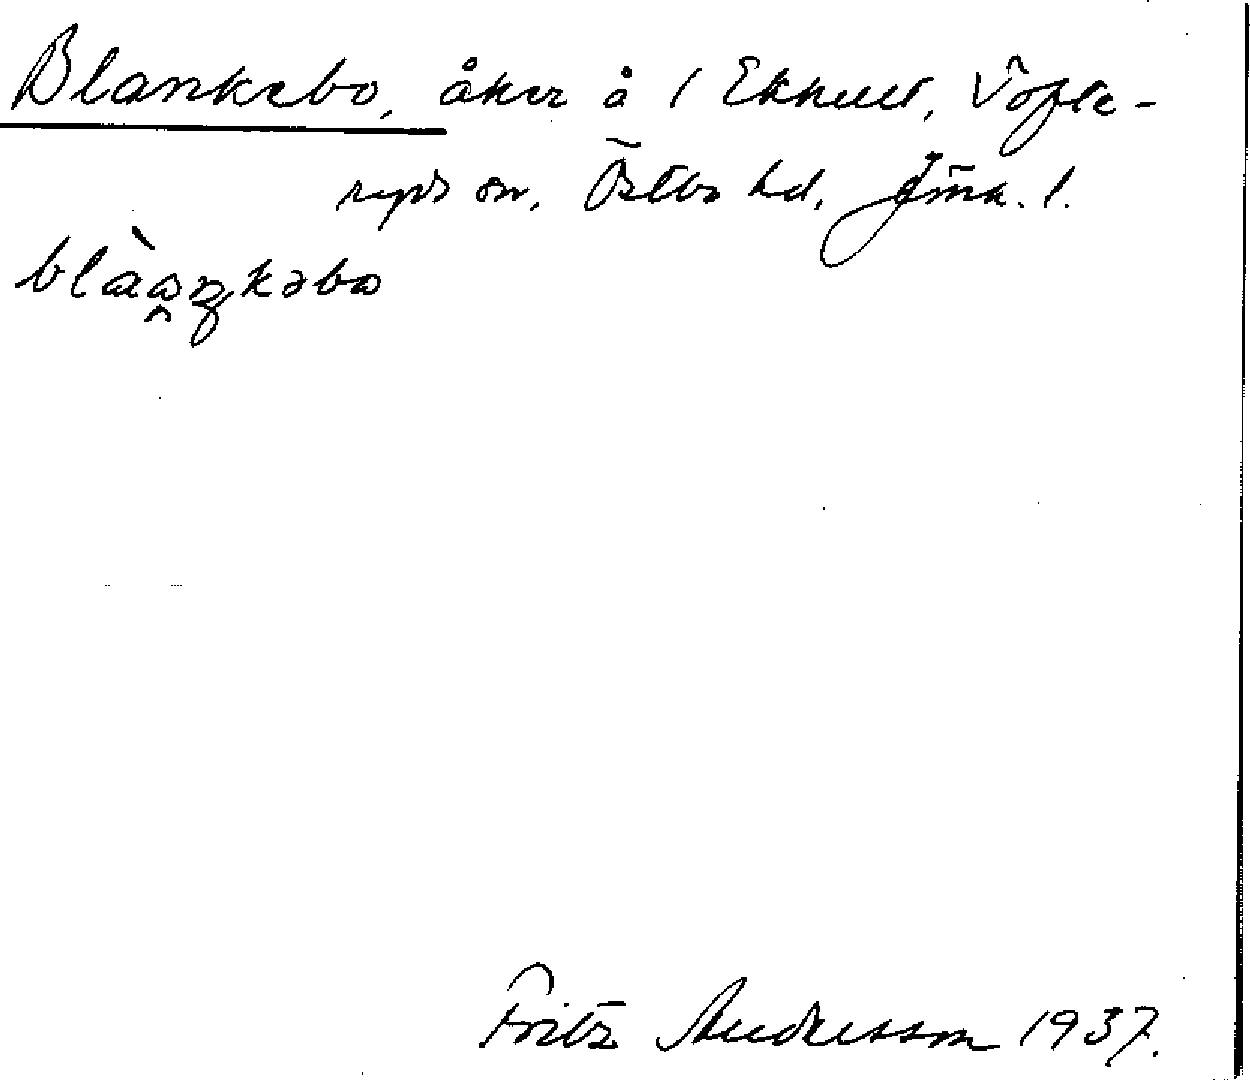 Blankebo, åker å 1 Ekhult, Döfle-
ryds sn, Östbo hd, Jönk. l.
blàaŋkəbo
Fritz Andersson 1937.